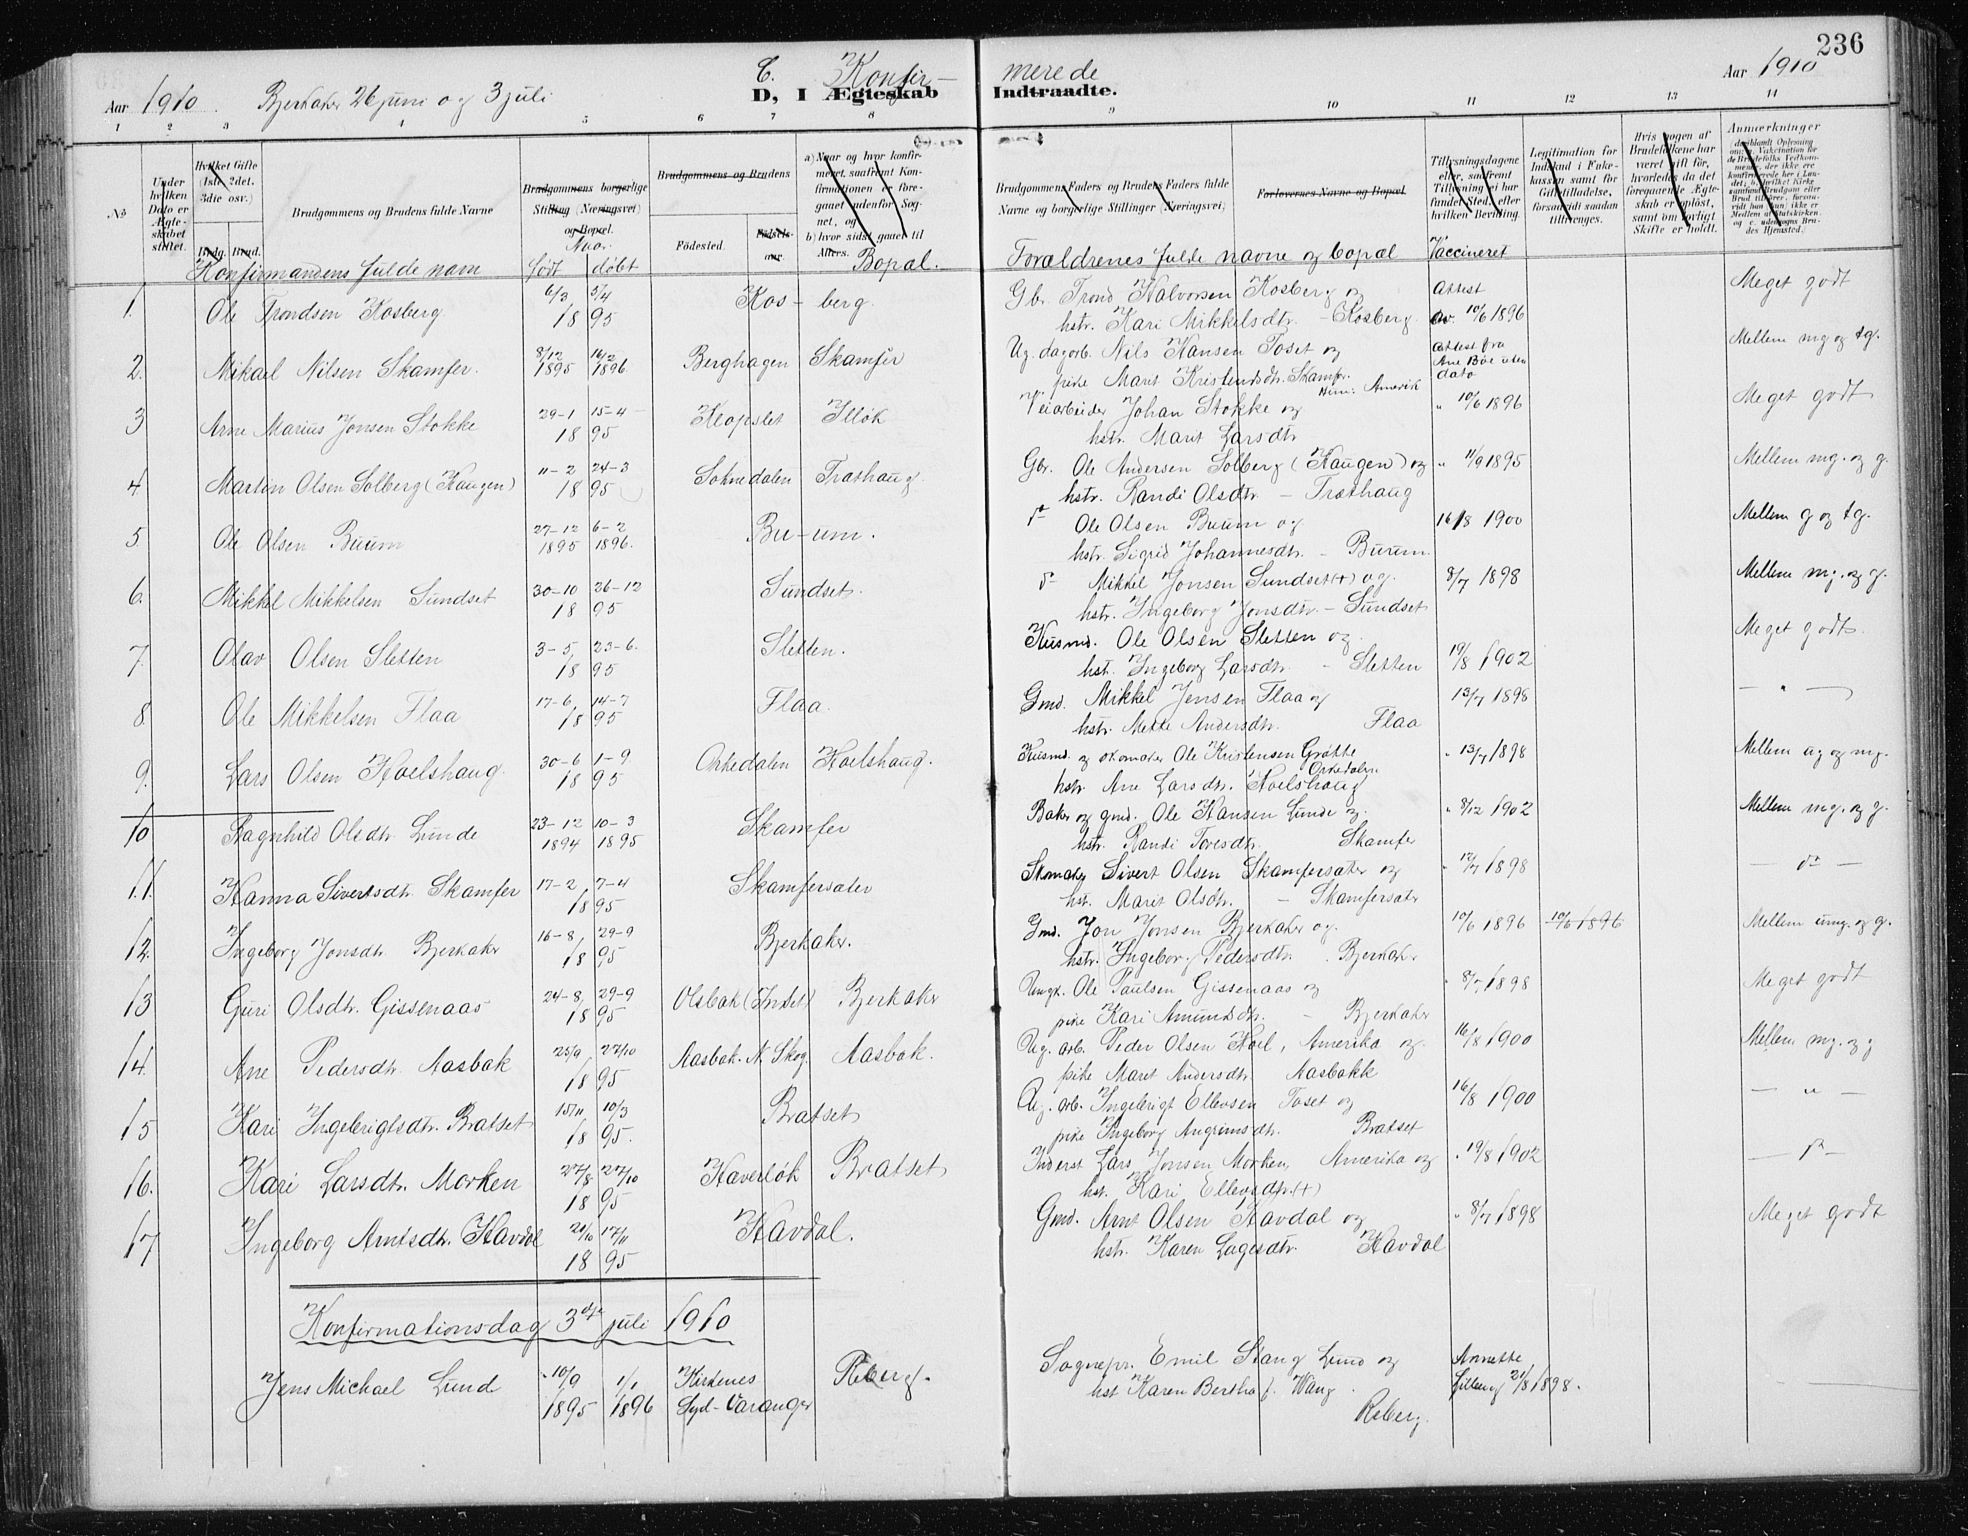 236
Aar 1910. Bjerkaker 26 juni og 3 juli
C. Konfir- merede
D, I Ægteskab Indtraadte.
Aar 1910
1 2 3 4 5 6 7 8 9 10 11 12 13 14
No
Under hvilken Dato er Ægteskabet stiftet.
Hvilket Gifte (1ste, 2det, 3die osv.)
Brdg. Brud.
Brudgommens og Brudens fulde Navne
Brudgommens borgerlige Stilling (Næringsvei) og Bopæl.
Brudgommens og Brudens
Fødested.
Fødselsaar.
a) Naar og hvor konfirmeret, saafremt Konfirmationen er foregaaet udenfor Sognet, og
b) hvor sidst gaaet til Alters.
Brudgommens Faders og Brudens Faders fulde Navne og borgerlige Stillinger (Næringsvei)
Forlovernes Navne og Bopæl.
Tillysningsdagene eller, saafremt Tillysning ei har fundet Sted, efter hvilken Bevilling.
Legitimation for Indskud i Enkekassen samt for Giftetilladelse, forsaavidt saadan tiltrænges.
Hvis nogen af Brudefolkene har været gift før, hvorledes da det foregaaende Ægteskab er opløst, samt om lovligt Skifte er holdt.
Anmærkninger
Konfirmandens fulde navn
Naar
født døbt
Bopæl.
Forældrenes fulde navne og bopæl
Vaccineret
1. Ole Trondsen Kosberg 6/3 5/4 1895 Kos-berg. Gbr. Trond Halvorsen Kosberg og Attest Meget godt
hstr. Kari Mikkelsdtr. - Kosberg. av 10/6 1896
2. Mikael Nilsen Skamfer. 8/12 1895 16/2 1896 Berghagen Skamfer Ug. dagarb. Nils Hansen Toset og Attest fra Ane Böe uten dato Mellem mg og tg.
pike Marit Kristensdtr. Skamfer. Amerik
3 Arne Marius Jonsen Stokke 29-1 15-4 1895 Klopslet Illøk Veiarbeider Johan Stokke og " 10/6 1896 Meget godt
hstr. Marit Larsdtr
4. Martin Olsen Solberg (Haugen) 11-2 24-3 1895 Soknedalen Træthaug. Gbr. Ole Andersen Solberg (Haugen) og " 11/9 1895 Mellem mg. og g.
hstr. Randi Olsdtr. - Træthaug
5. Ole Olsen Buum 27-12 1895 6-2 1896. Bu-um. do Ole Olsen Buum og 16/8 1900 Mellem g og tg.
hstr. Sigrid Johannesdtr. - Buum.
6. Mikkel Mikkelsen Sundset 30-10 26-12 1895 Sundset. do Mikkel Jonsen Sundset (+) og. 8/7 1898 Mellem mg. og g.
hstr. Ingeborg Jonsdtr. - Sundset
7. Olav Olsen Sletten 3-5 23-6. 1895 Sletten. Husmd. Ole Olsen Sletten og. 19/8 1902 Meget godt.
hst. Ingeborg Larsdtr. - Sletten
8 Ole Mikkelsen Flaa 17-6 14-7 1895 Flaa. Gmd. Mikkel Jensen Flaa og 13/7 1898 - " -
hstr. Mette Andersdtr. Flaa
9. Lars Olsen Hoelshaug. 30-6 1-9 1895 Orkedalen Hoelshaug. Husmd. og skomaker Ole Kristensen Grøtte Orkedalen " 13/7 1898 Mellem ug og mg.
hstr. Ane Larsdtr. Hoelshaug
10 Ragnhild Olsdtr Lunde 23-12 1894 10-3 1895 Skamfer Baker og gmd. Ole Hansen Lunde og " 8/12 1902 Mellem mg. og g.
hstr. Randi Toresdtr. Skamfer
11. Hanna Sivertsdtr. Skamfer 17-2 7-4 1895 Skamfersæter Skomaker Sivert Olsen Skamfersæter og " 12/7 1898 - do -
hst. Marit Olsdtr. - Skamfersætr
12. Ingeborg Jonsdtr Bjerkaker 16-8, 29-9 1895 Bjerkaker. Gmd. Jon Jonsen Bjerkaker og. 10/6 1896 10/6 1896 Mellem umg. og g.
hstr. Ingeborg Pedersdtr. Bjerkaker
13 Guri Olsdtr. Gissenaas 24-8, 29-9 1895 Olsbak (Indset) Bjerkaker Ungk. Ole Paulsen Gissenaas og " 8/7 1898 Meget godt
pike Kari Amundsdtr. - Bjerkaker
14. Ane Pedersdtr. Aasbak 25/9 27/10 1895 Aasbak. N. Skog. Aasbak. Ug. arb. Peder Olsen Hoel, Amerika og. 16/8 1900 Mellem mg. og g
pike Maret Andersdtr Aasbakk
15 Kari Ingebrigtsdtr. Bratset 15/11 10/3 1895. Bratset Ug. arb. Ingebrigt Ellevsen Toset og 16/8 1900 - " -
pike Ingeborg Angrimsdtr. Bratset
16. Kari Larsdtr. Morken 27/8 27/10 1895 Haverløk Bratset Inderst Lars Jonsen Morken, Amerika og " 19/8 1902 - do -
hst. Kari Ellevsdtr. (+)
17 Ingeborg Arntsdtr. Havdal 21/10 17/11 1895 Havdal. Gmd. Arnt Olsen Havdal og " 8/7 1898 Meget godt
hstr. Karen Lagesdtr. Havdal
Konfirmationsdag 3die juli 1910
Jens Michael Lund 10/9 1895 1/1 1896 Kirkenes Syd-Varanger Reberg. Sognepr. Emil Stang Lund og Annette
hst Karen Bertha f. Wang. 21/8 1898.
Reberg.